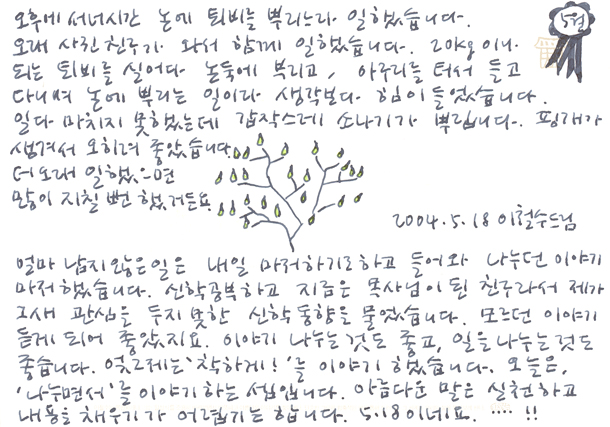 오후에 서너시간 논에 퇴비를 뿌리느라 일했습니다.
오래 사귄 친구가 와서 함께 일했습니다. 20kg이나
되는 퇴비를 실어다 논둑에 부리고, 아구리를 터서 들고
다니며 논에 뿌리는 일이라 생각보다 힘이 들었습니다.
일 다 마치지 못했는데 갑작스레 소나기가 뿌립니다. 핑계가
생겨서 오히려 좋았습니다.
더 오래 일했으면
많이 지칠 뻔 했거든요.
5월
2004.5.18 이철수드림
얼마 남지않은 일은 내일 마저하기로하고 들어와 나누던 이야기
마저 했습니다. 신학공부하고 지금은 목사님이 된 친구라서 제가
그새 관심을 두지 못한 신학동향을 물었습니다. 모르던 이야기
듣게 되어 좋았지요. 이야기 나누는것도 좋고, 일을 나누는것도
좋습니다. 엊그제는 '착하게!'를 이야기 했습니다. 오늘은,
'나누면서'를 이야기하는 셈입니다. 아름다운 말은 실천하고
내용을 채우기가 어렵기는 합니다. 5.18이네요. .... !!